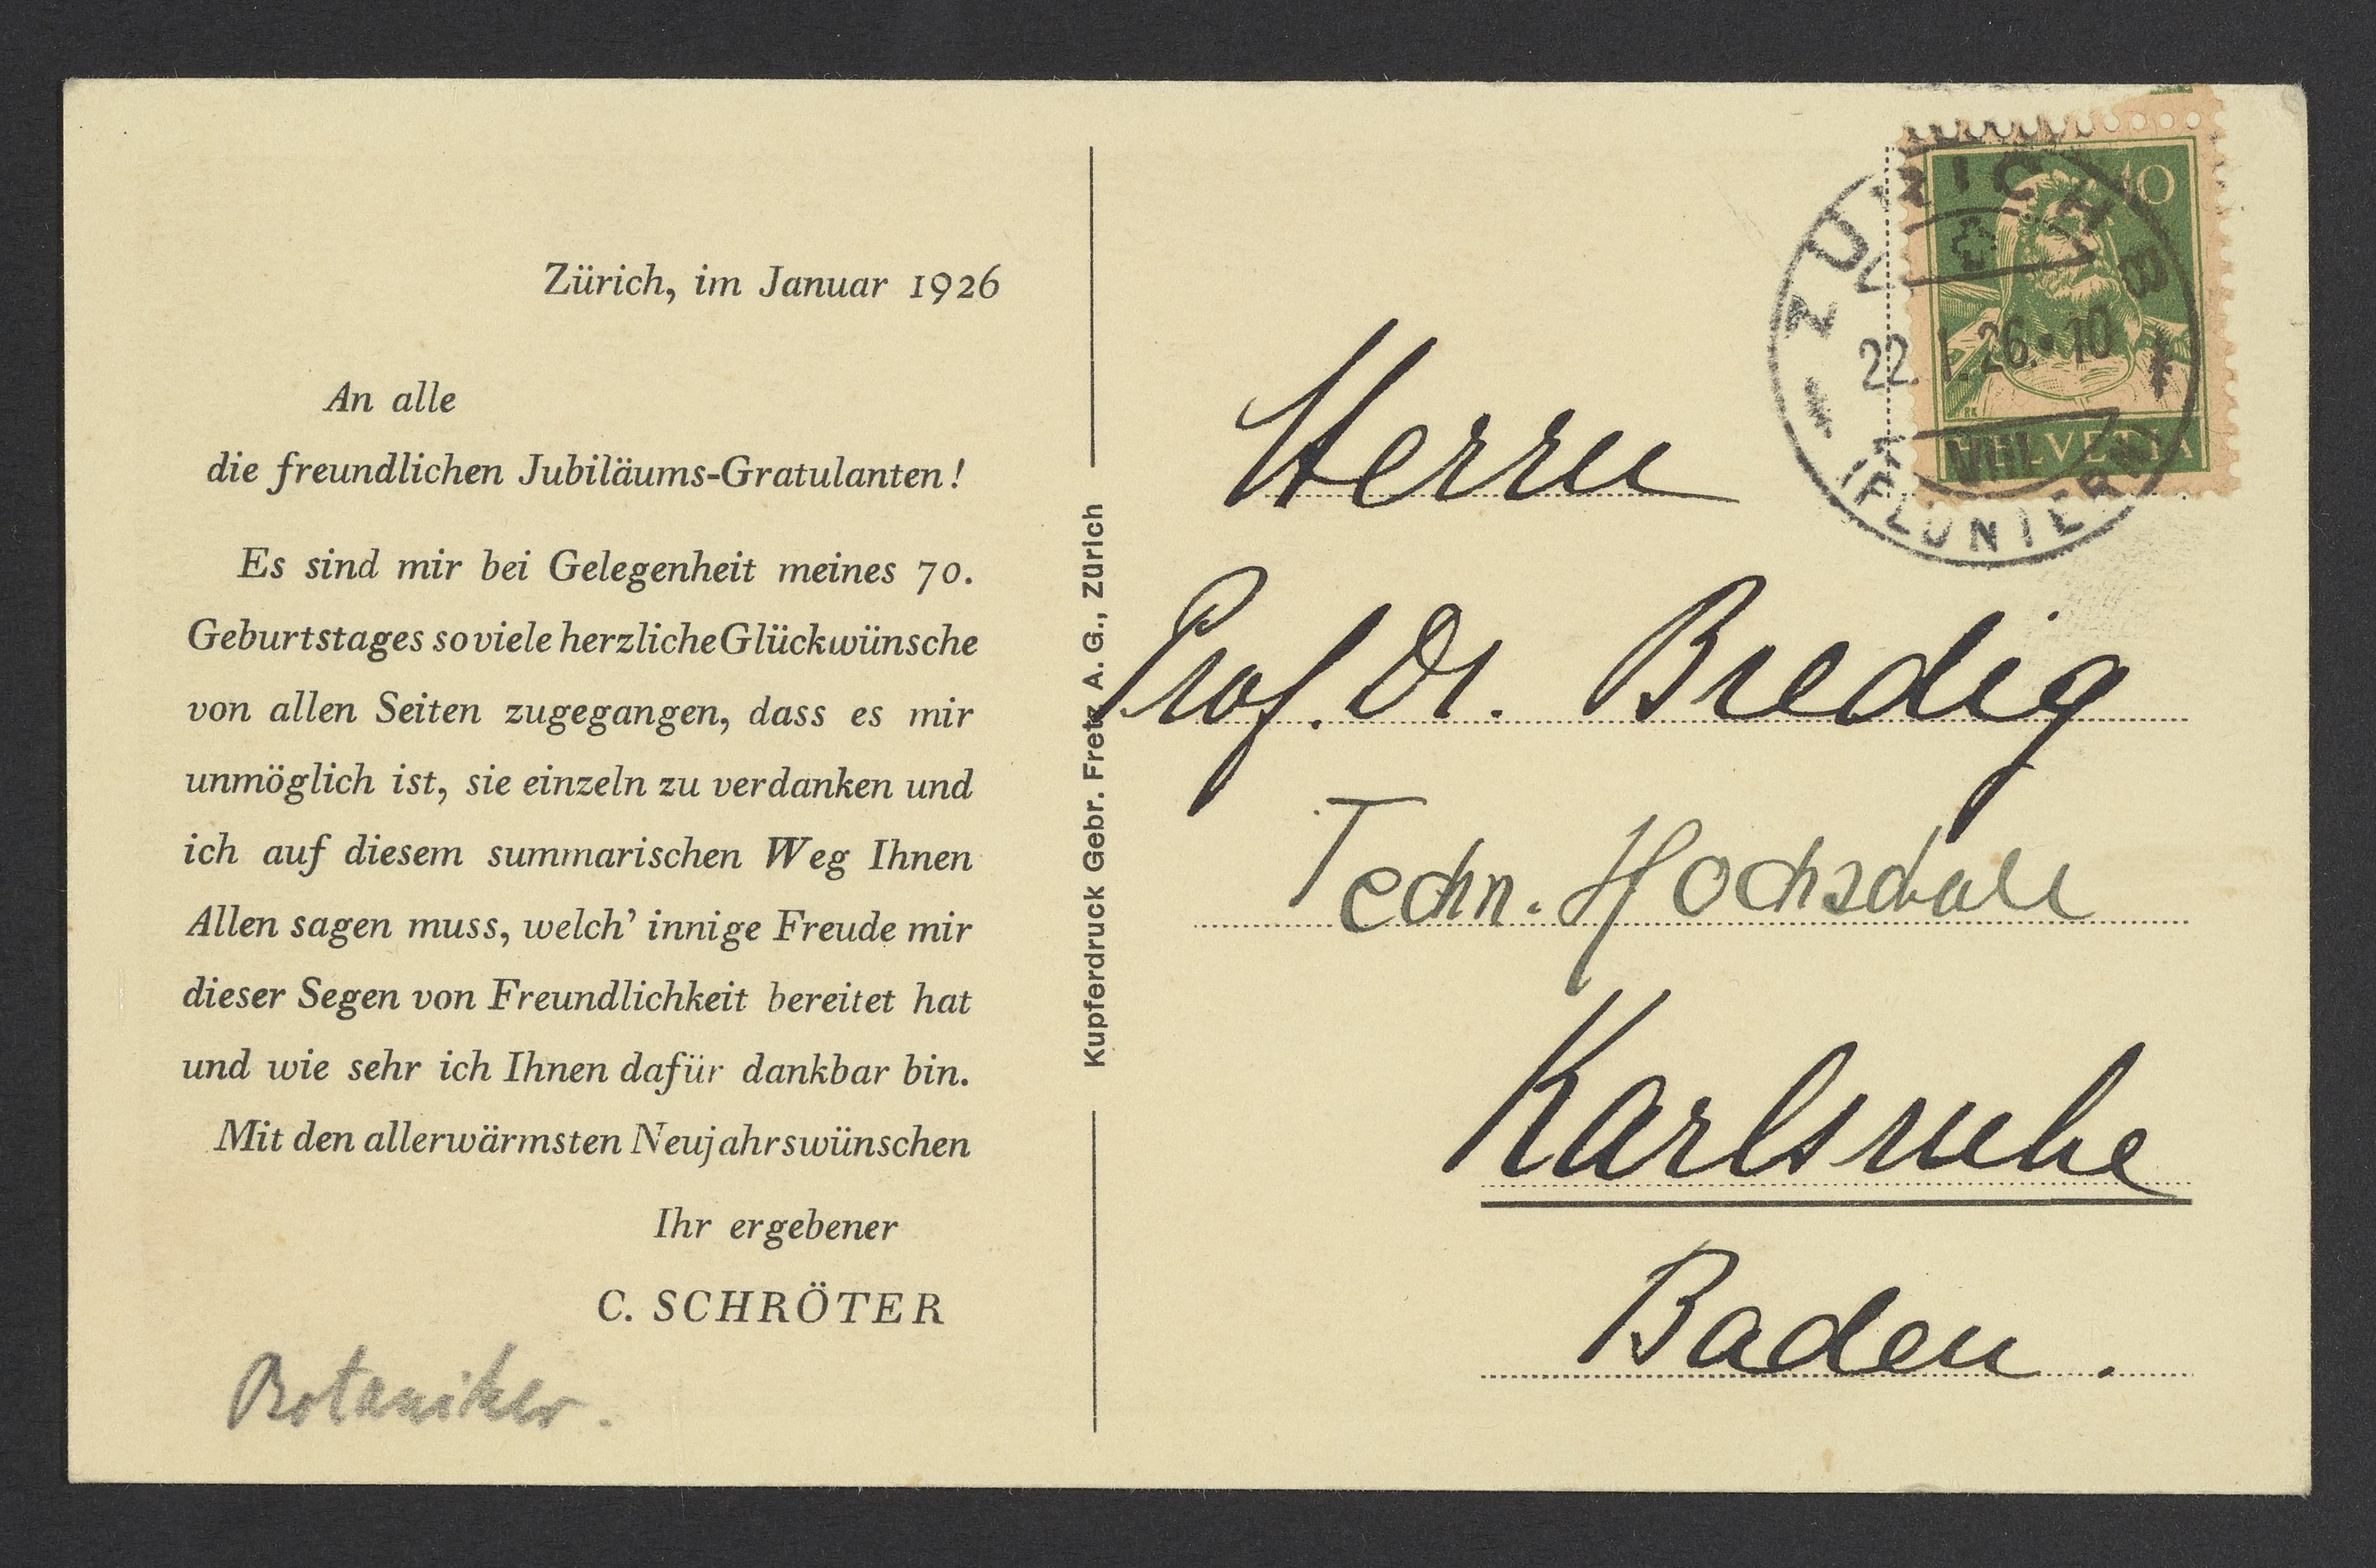 Zürich, im Januar 1926
An alle
die freundlichen Jubiläums-Gratulanten!
Es sind mir bei Gelegenheit meines 70.
Geburtstages so viele herzliche Glückwünsche
von allen Seiten zugegangen, dass es mir
unmöglich ist, sie einzeln zu verdanken und
ich auf diesem summarischen Weg Ihnen
Allen sagen muss, welch' innige Freude mir
dieser Segen von Freundlichkeit bereitet hat
und wie sehr ich Ihnen dafür dankbar bin.
Mit den allerwärmsten Neujahrswünschen
Ihr ergebener
C. SCHRÖTER
Botaniker.
Kupferdruck Gebr. Fretz A. G., Zürich
ZÜRICH 8
22. I. 26. 10
VIII
(FLUNTERN)
10
HELVETIA
Herrn
Prof. Dr. Bredig
Techn. Hochschule
Karlsruhe
Baden.